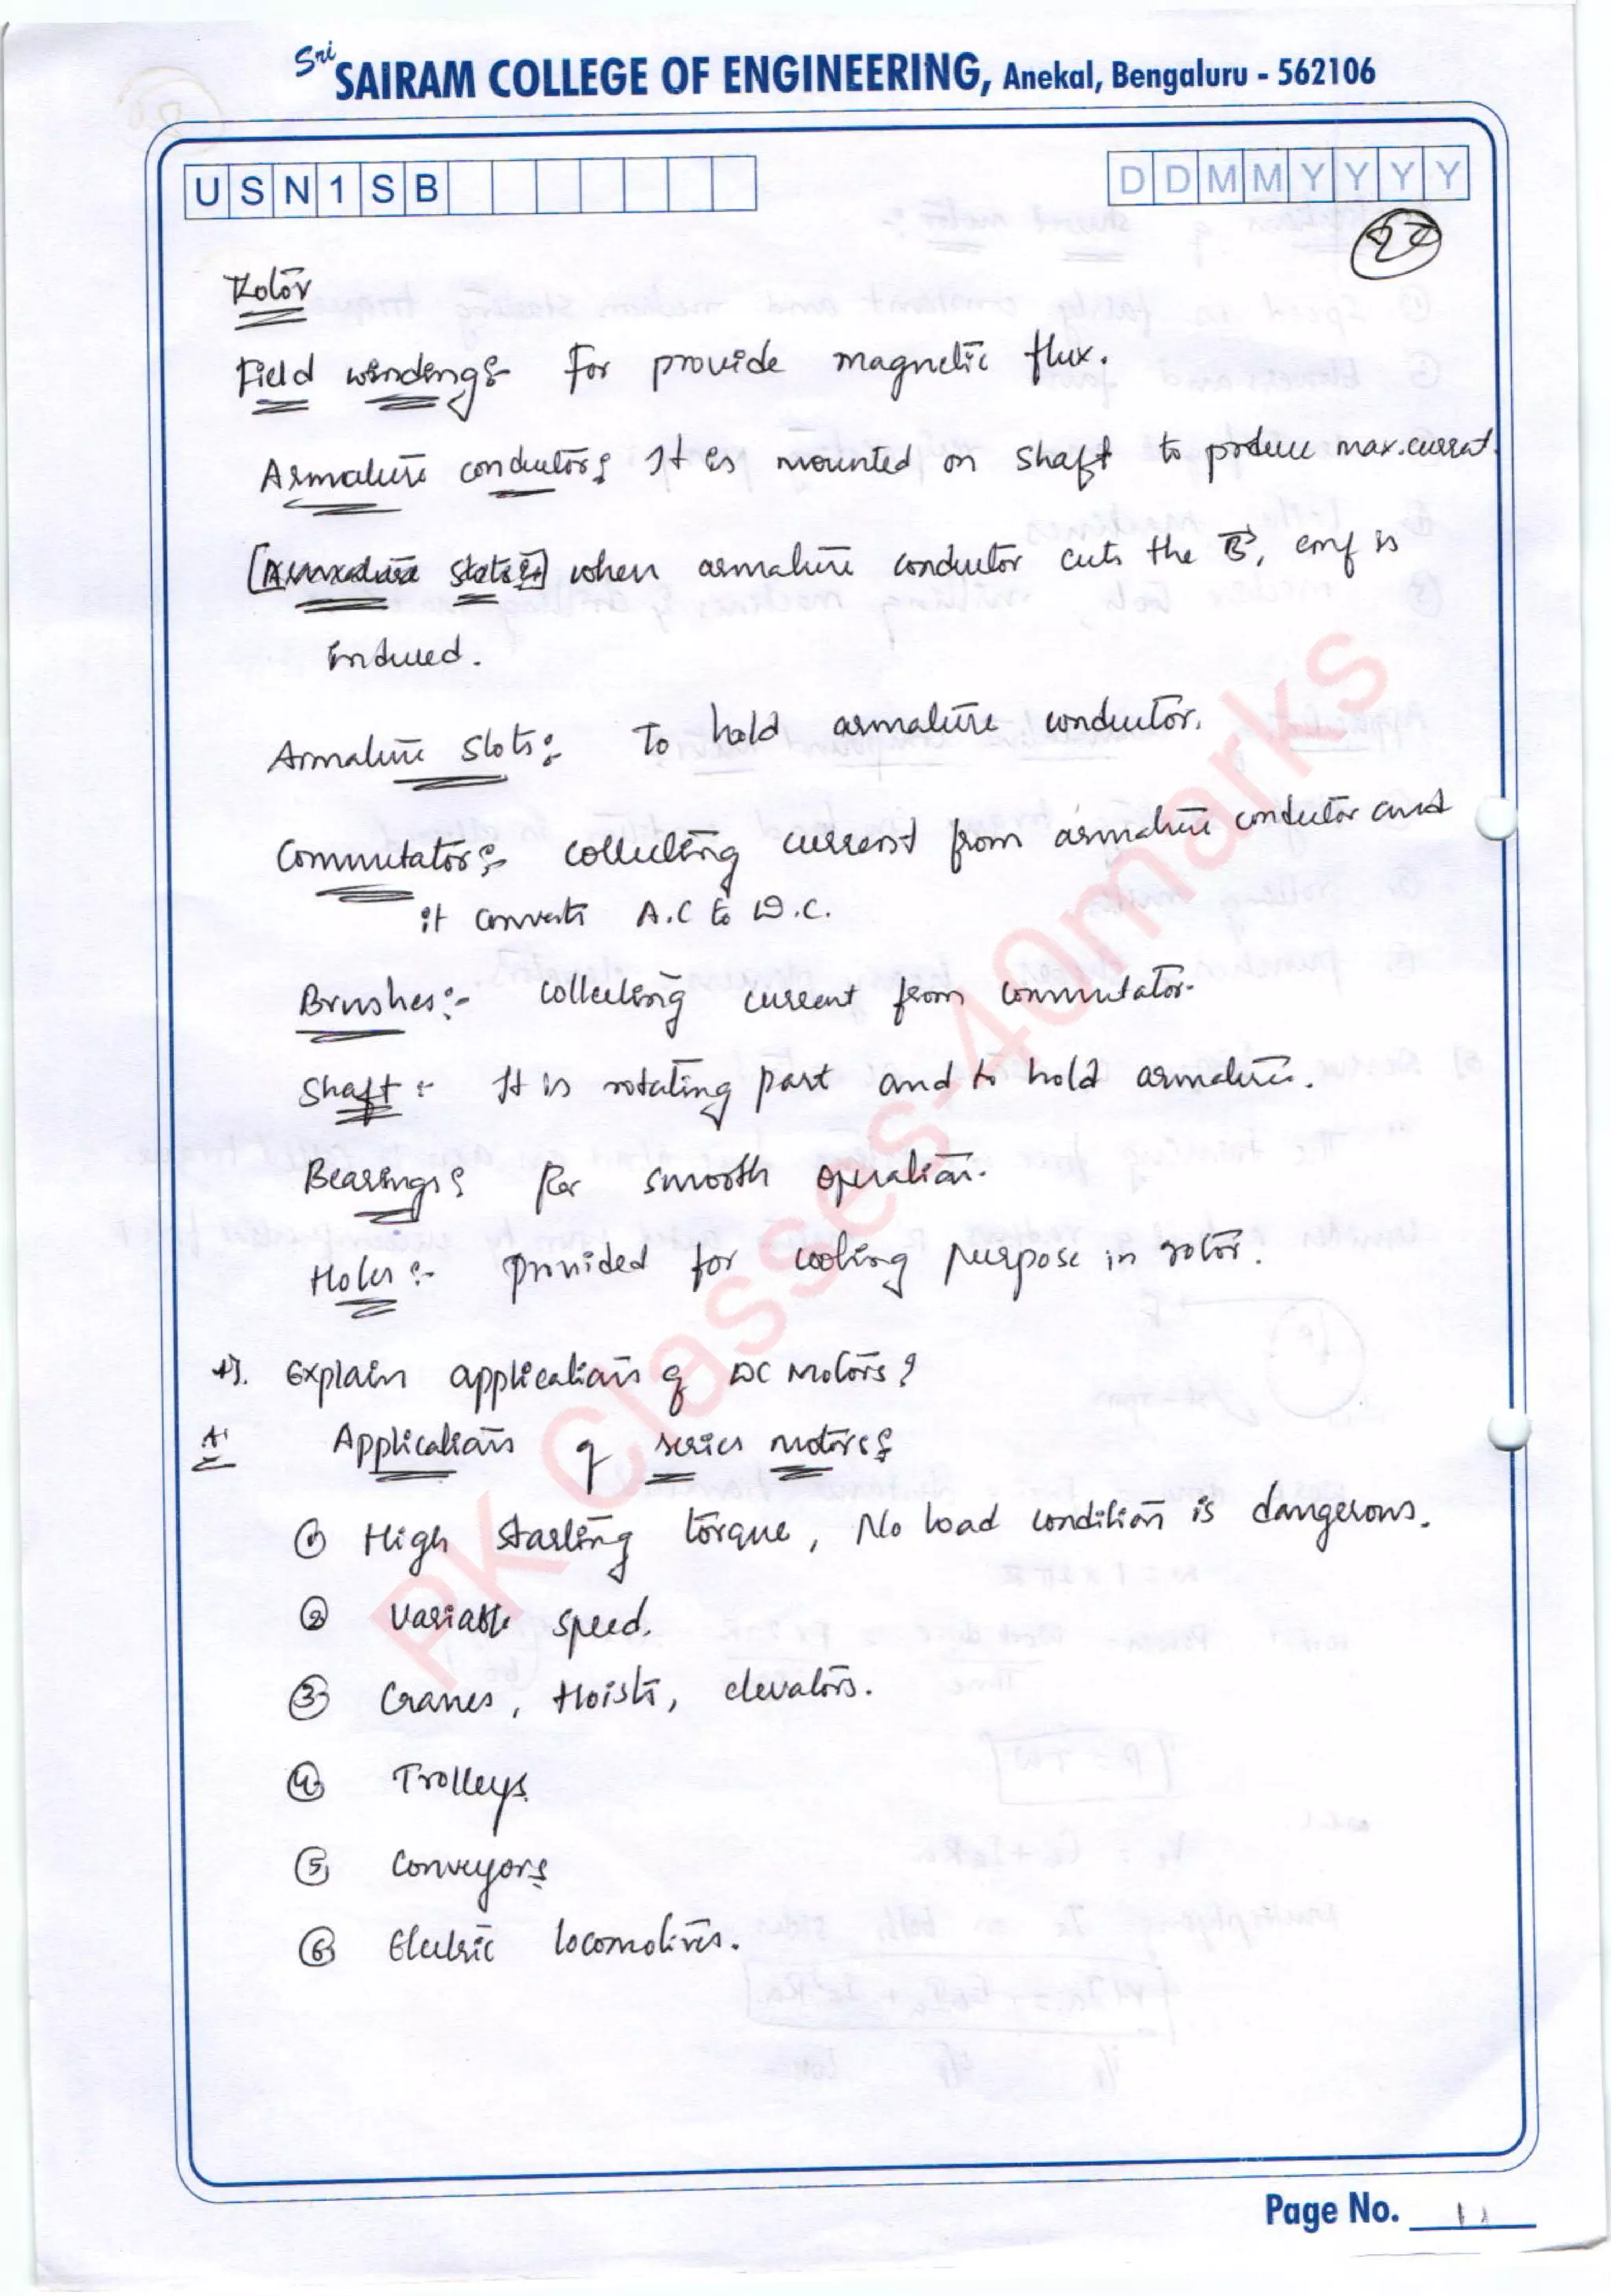 Sri SAIRAM COLLEGE OF ENGINEERING, Anekal, Bengaluru - 562106
USN1SB
DDMMYYYY
Rotor
Field winding:- For provide magnetic flux.
Armature conductor: It is mounted on shaft to produce max.current.
when armature conductor cuts the B, emf is
induced.
Armature slots:- To hold armature conductor.
Commutator:- collecting current from armature conductor and
it converts A.C to D.C.
Brushes:- collecting current from commutator.
Shaft:- It is rotating part and to hold armature.
Bearings: For smooth operation.
Holes:- provided for cooling purpose in rotor.
Explain applications of DC Motors?
A. Applications of series motors:
① High starting torque, No load condition is dangerous.
② Variable speed.
③ Cranes, Hoists, elevators.
④ Trolleys.
⑤ Conveyors
⑥ Electric locomotives.
PK Classes-40marks
Page No.